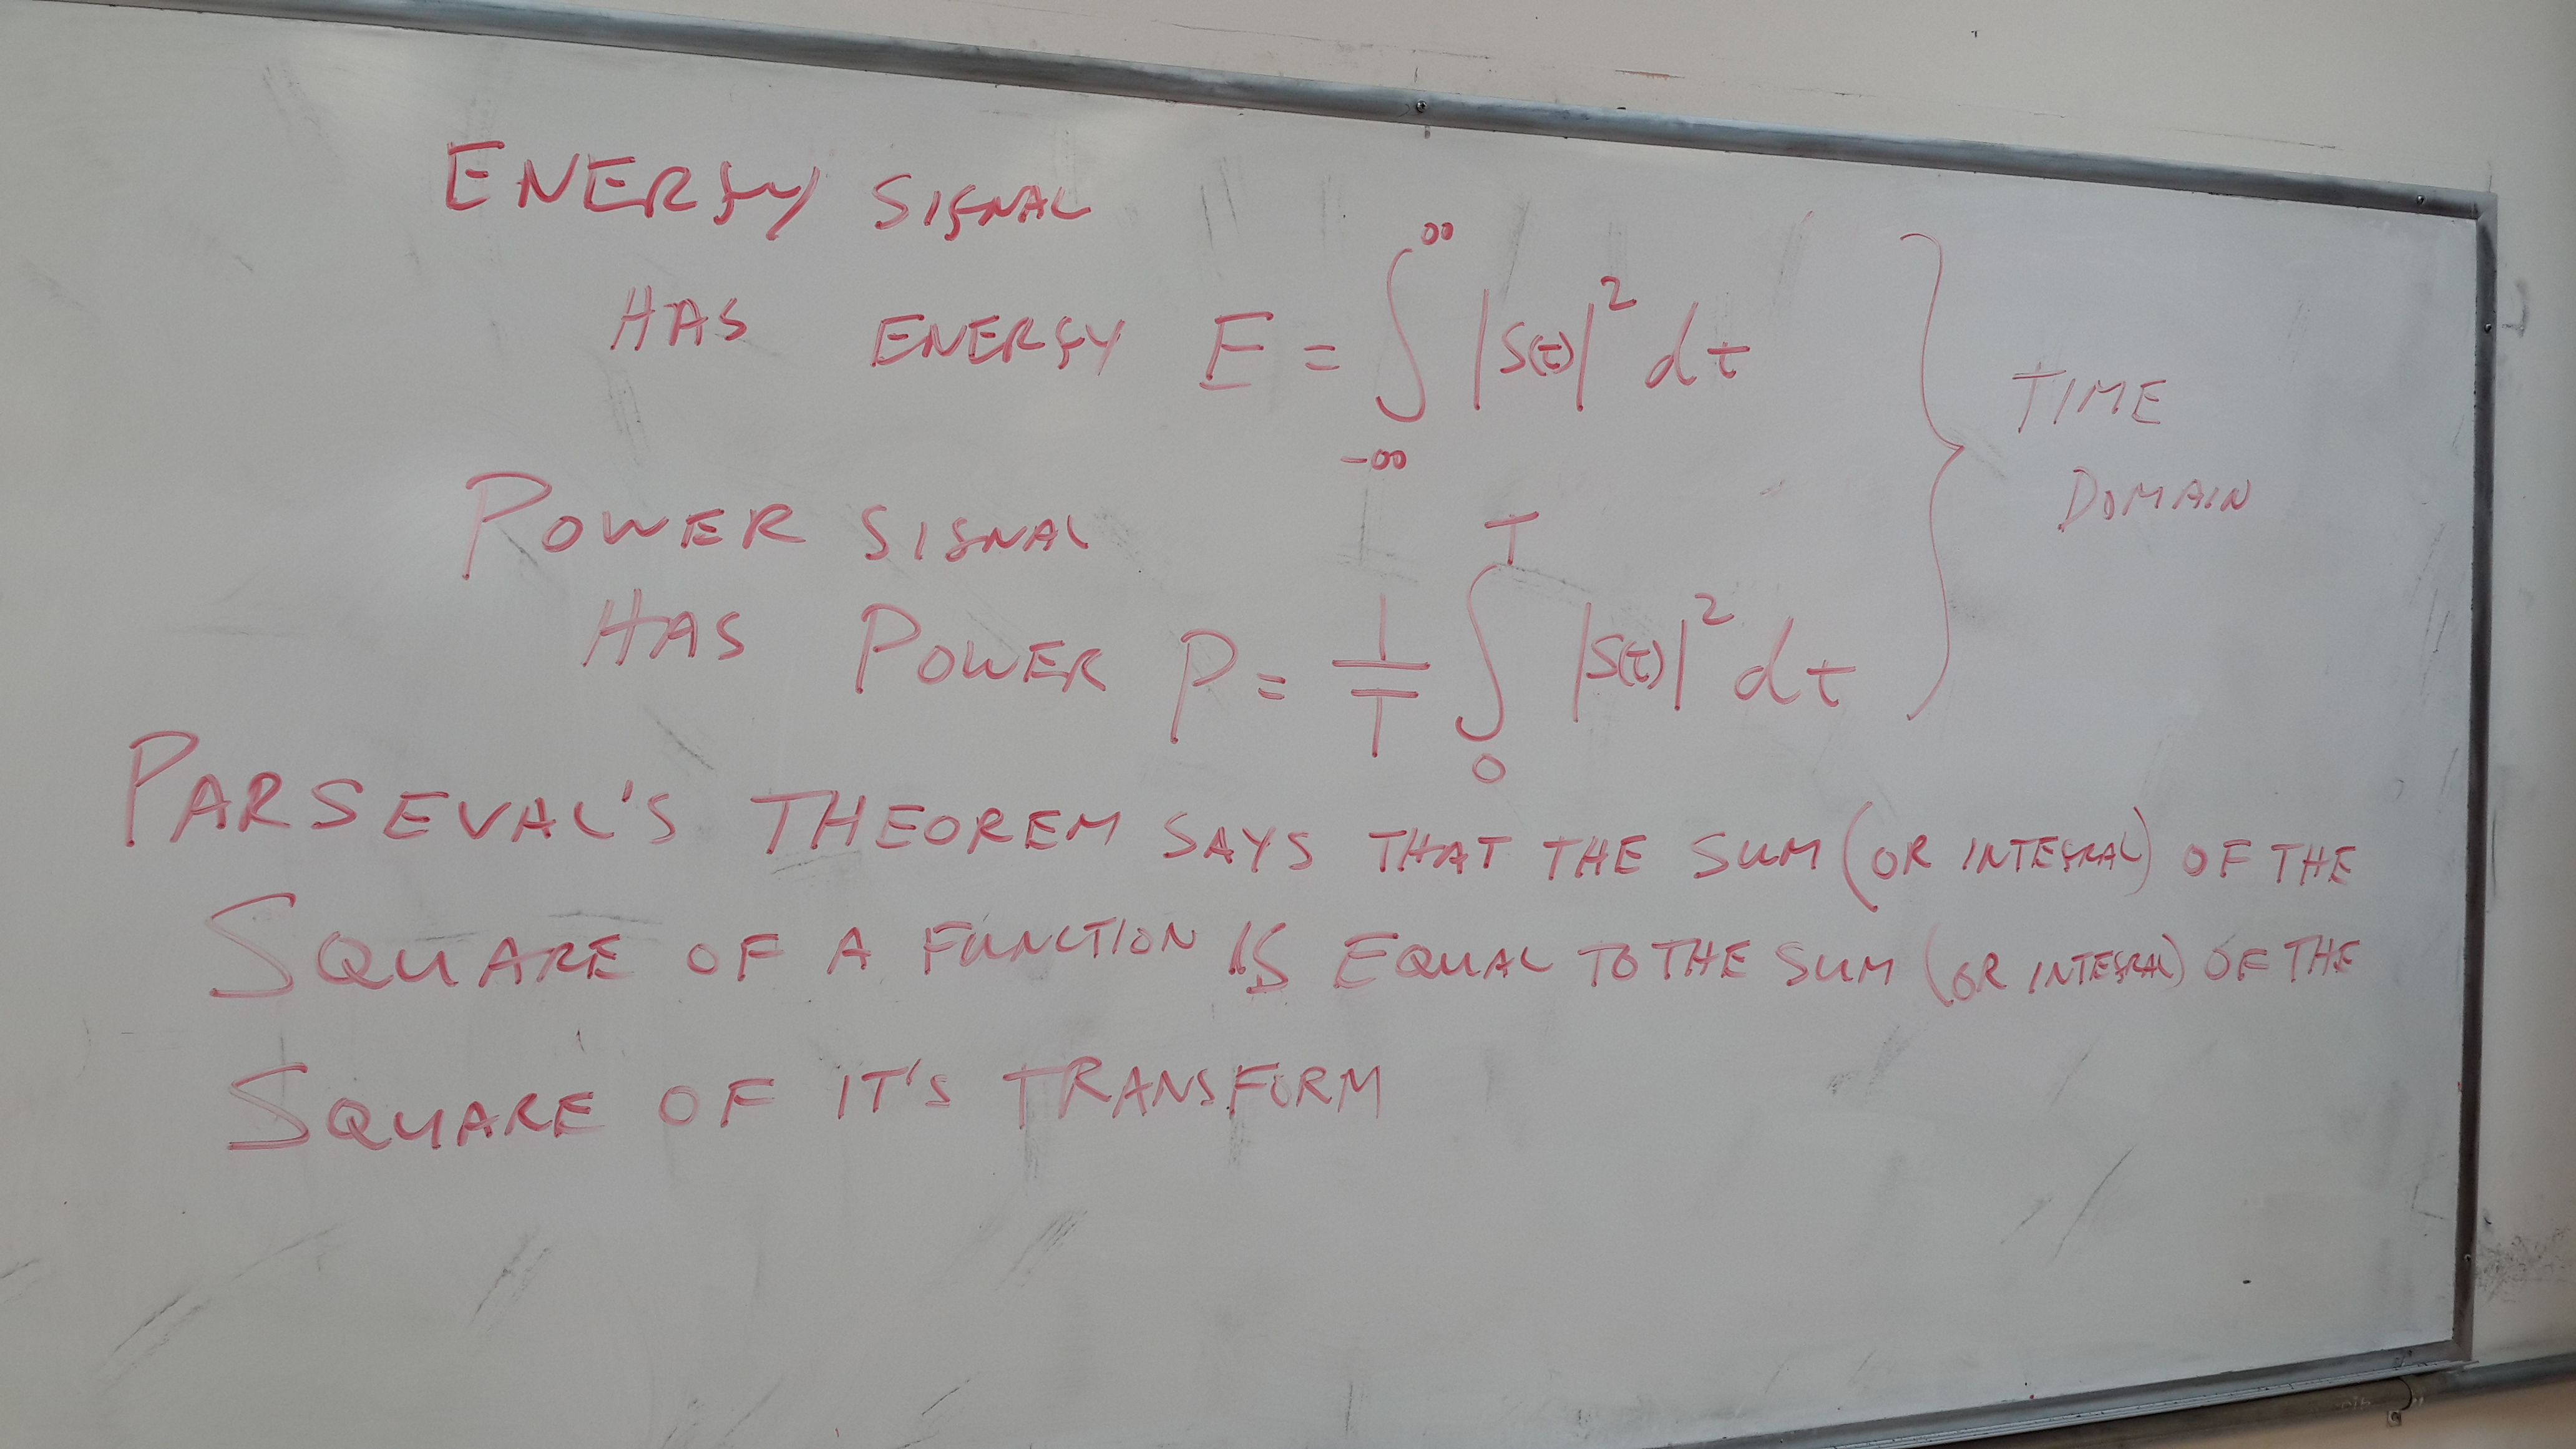 ENERGY SIGNAL
HAS ENERGY E = ∫_{-∞}^{∞} |S(t)|² dt
POWER SIGNAL
HAS POWER P = 1/T ∫_{0}^{T} |S(t)|² dt
} TIME
DOMAIN
PARSEVAL'S THEOREM SAYS THAT THE SUM (OR INTEGRAL) OF THE
SQUARE OF A FUNCTION IS EQUAL TO THE SUM (OR INTEGRAL) OF THE
SQUARE OF IT'S TRANSFORM